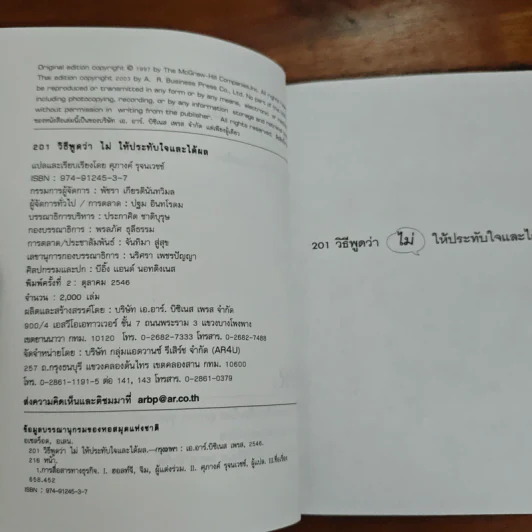 Original edition copyright © 1997 by The McGraw-Hill Companies,Inc. All rights
Thai edition copyright 2003 by A. R. Business Press Co., Ltd. No part of
be reproduced or transmitted in any form or by any means, electronic or
including photocopying, recording, or by any information storage and retrieval
without permission in writing from the publisher. All rights reserved.
ของหนังสือเล่มนี้เป็นของบริษัท เอ. อาร์. บิซิเนส เพรส จำกัด แต่เพียงผู้เดียว
201 วิธีพูดว่า ไม่ ให้ประทับใจและได้ผล
แปลและเรียบเรียงโดย ศุภางค์ รุจนเวชช์
ISBN : 974-91245-3-7
กรรมการผู้จัดการ : พัชรา เกียรตินันทวิมล
ผู้จัดการทั่วไป / การตลาด : ปฐม อินทโรดม
บรรณาธิการบริหาร : ประกาศิต ชาติบุรุษ
กองบรรณาธิการ : พรลภัศ ธุลีธรรม
การตลาด/ประชาสัมพันธ์ : จันทิมา สู่สุข
เลขานุการกองบรรณาธิการ : นริศรา เพชรปัญญา
ศิลปกรรมและปก : บีอิ้ง แอนด์ นอทติงเนส
พิมพ์ครั้งที่ 2 : ตุลาคม 2546
จำนวน : 2,000 เล่ม
ผลิตและสร้างสรรค์โดย : บริษัท เอ.อาร์. บิซิเนส เพรส จำกัด
900/4 เอสวีโอเอทาวเวอร์ ชั้น 7 ถนนพระราม 3 แขวงบางโพงพาง
เขตยานนาวา กทม. 10120 โทร. 0-2682-7333 โทรสาร. 0-2682-7488
จัดจำหน่ายโดย : บริษัท กลุ่มแอดวานซ์ รีเสิร์ช จำกัด (AR4U)
257 ถ.กรุงธนบุรี แขวงคลองต้นไทร เขตคลองสาน กทม. 10600
โทร. 0-2861-1191-5 ต่อ 141, 143 โทรสาร. 0-2861-0379
ส่งความคิดเห็นและติชมมาที่ arbp@ar.co.th
ข้อมูลบรรณานุกรมของหอสมุดแห่งชาติ
อเซลร็อด, อเลน.
201 วิธีพูดว่า ไม่ ให้ประทับใจและได้ผล.--กรุงเทพฯ : เอ.อาร์.บิซิเนส เพรส, 2546.
216 หน้า.
1.การสื่อสารทางธุรกิจ. I. ฮอลท์จี, จิม, ผู้แต่งร่วม. II. ศุภางค์ รุจนเวชช์, ผู้แปล. III.ชื่อเรื่อง
658.452
ISBN : 974-91245-3-7
201 วิธีพูดว่า ไม่ ให้ประทับใจและได้